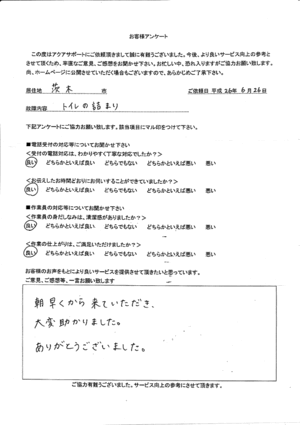 お客様アンケート
この度はアクアサポートにご依頼頂きまして誠に有難うございました。今後、より良いサービス向上の参考と
させて頂くため、率直なご意見、ご感想をお聞かせ下さい。お忙しい中、恐れ入りますがご協力お願い致します。
尚、ホームページに公開させていただく場合もございますので、あらかじめご了承下さい。
居住地 茨木 市 ご依頼日 平成 26年 6月 26日
故障内容 トイレの詰まり
下記アンケートにご協力お願い致します。該当項目にマル印をつけて下さい。
■電話受付の対応等についてお聞かせ下さい
<受付の電話対応は、わかりやすく丁寧な対応でしたか?>
良い どちらかといえば良い どちらでもない どちらかといえば悪い 悪い
<お伝えしたお時間どおりにお伺いすることができていましたか?>
良い どちらかといえば良い どちらでもない どちらかといえば悪い 悪い
■作業員の対応等についてお聞かせ下さい
<作業員の身だしなみは、清潔感がありましたか?>
良い どちらかといえば良い どちらでもない どちらかといえば悪い 悪い
<作業の仕上がりは、ご満足いただけましたか?>
良い どちらかといえば良い どちらでもない どちらかといえば悪い 悪い
お客様のお声をもとにより良いサービスを提供させて頂きたいと思っています。
ご意見、ご感想等、一言お願い致します
朝早くから来ていただき、
大変助かりました。
ありがとうございました。
ご協力有難うございました。サービス向上の参考にさせて頂きます。